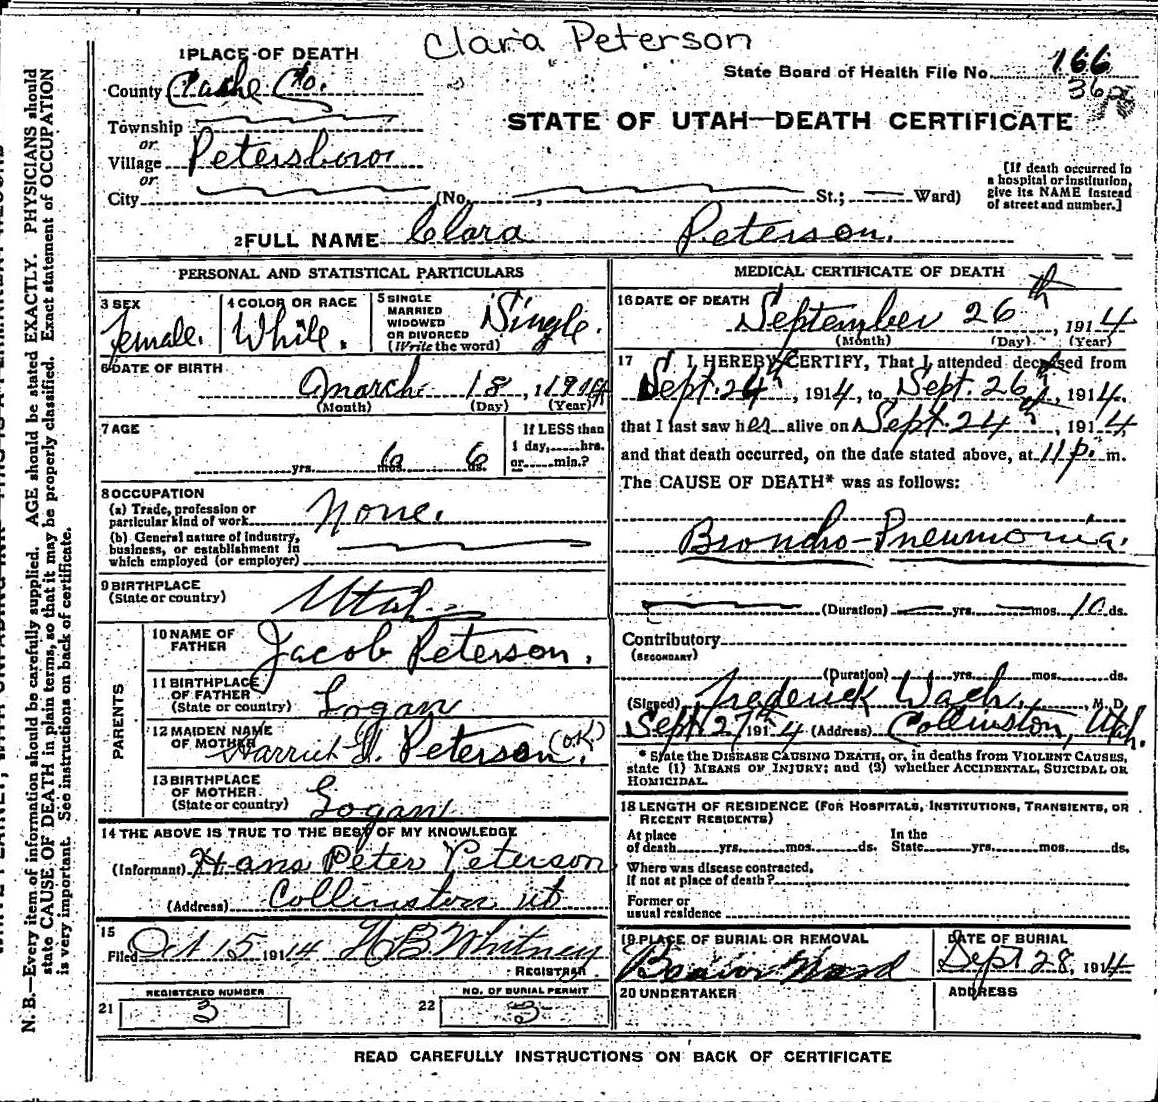 Clara Peterson
1 PLACE OF DEATH
State Board of Health File No. 166
36
County Cache Co.
STATE OF UTAH—DEATH CERTIFICATE
Township
or
Village Petersboro
or
City (No. , St.; Ward)
[If death occurred in
a hospital or institution,
give its NAME instead
of street and number.]
2 FULL NAME Clara Peterson.
PERSONAL AND STATISTICAL PARTICULARS
3 SEX
female.
4 COLOR OR RACE
White.
5 SINGLE
MARRIED
WIDOWED
OR DIVORCED
(Write the word)
Single.
6 DATE OF BIRTH
March 18, 1914
(Month) (Day) (Year)
7 AGE
yrs. 6 mos. 6 ds.
If LESS than
1 day, hrs.
or min.?
8 OCCUPATION
(a) Trade, profession or
particular kind of work None.
(b) General nature of industry,
business, or establishment in
which employed (or employer)
9 BIRTHPLACE
(State or country) Utah
PARENTS
10 NAME OF
FATHER Jacob Peterson.
11 BIRTHPLACE
OF FATHER
(State or country) Logan
12 MAIDEN NAME
OF MOTHER Peterson. (O.K.)
13 BIRTHPLACE
OF MOTHER
(State or country) Logan
14 THE ABOVE IS TRUE TO THE BEST OF MY KNOWLEDGE
(Informant) Hans Peter Peterson
(Address) Collinston Ut
15
Filed Oct 15 1914 H B Whitney
REGISTRAR
REGISTERED NUMBER
21 3
NO. OF BURIAL PERMIT
22 3
MEDICAL CERTIFICATE OF DEATH
16 DATE OF DEATH
September 26th, 1914
(Month) (Day) (Year)
17 I HEREBY CERTIFY, That I attended deceased from
Sept. 24th, 1914, to Sept. 26th, 1914.
that I last saw her alive on Sept. 24th, 1914
and that death occurred, on the date stated above, at 11 p. m.
The CAUSE OF DEATH* was as follows:
Broncho-Pneumonia.
(Duration) yrs. mos. 10 ds.
Contributory
(SECONDARY)
(Duration) yrs. mos. ds.
(Signed) Frederick , M. D.
Sept. 27th 1914 (Address) Collinston, Utah.
* State the DISEASE CAUSING DEATH, or, in deaths from VIOLENT CAUSES,
state (1) MEANS OF INJURY; and (2) whether ACCIDENTAL, SUICIDAL OR
HOMICIDAL.
18 LENGTH OF RESIDENCE (FOR HOSPITALS, INSTITUTIONS, TRANSIENTS, OR
RECENT RESIDENTS)
At place In the
of death yrs. mos. ds. State yrs. mos. ds.
Where was disease contracted,
if not at place of death?
Former or
usual residence
19 PLACE OF BURIAL OR REMOVAL
Ward
DATE OF BURIAL
Sept 28, 1914
20 UNDERTAKER
ADDRESS
READ CAREFULLY INSTRUCTIONS ON BACK OF CERTIFICATE
N. B.—Every item of information should be carefully supplied. AGE should be stated EXACTLY. PHYSICIANS should
state CAUSE OF DEATH in plain terms, so that it may be properly classified. Exact statement of OCCUPATION
is very important. See instructions on back of certificate.